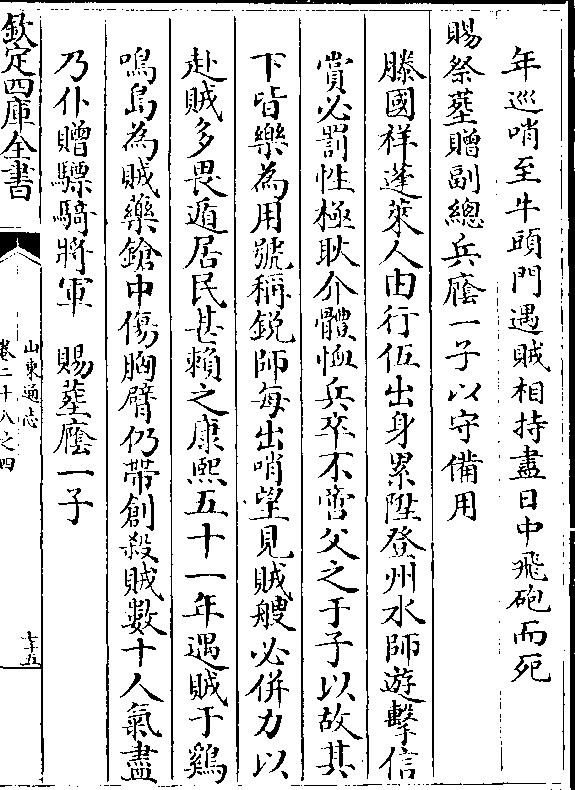 年巡哨至牛頭門遇賊相持盡日中飛砲而死
賜祭塟贈副總兵廕一子以守備用
滕國祥蓬萊人由行伍出身累陞登州水師遊擊信
賞必罰性極耿介體恤兵卒不啻父之于子以故其
下皆樂為用號稱鋭師每出哨望見賊艘必併力以
赴賊多畏遁居民甚賴之康熙五十一年遇賊于鷄
鳴島為賊藥鎗中傷胸臂仍帶創殺賊數十人氣盡
乃仆贈驃騎將軍　賜塟廕一子
欽定四庫全書
山東通志
卷二十八之四
七十五